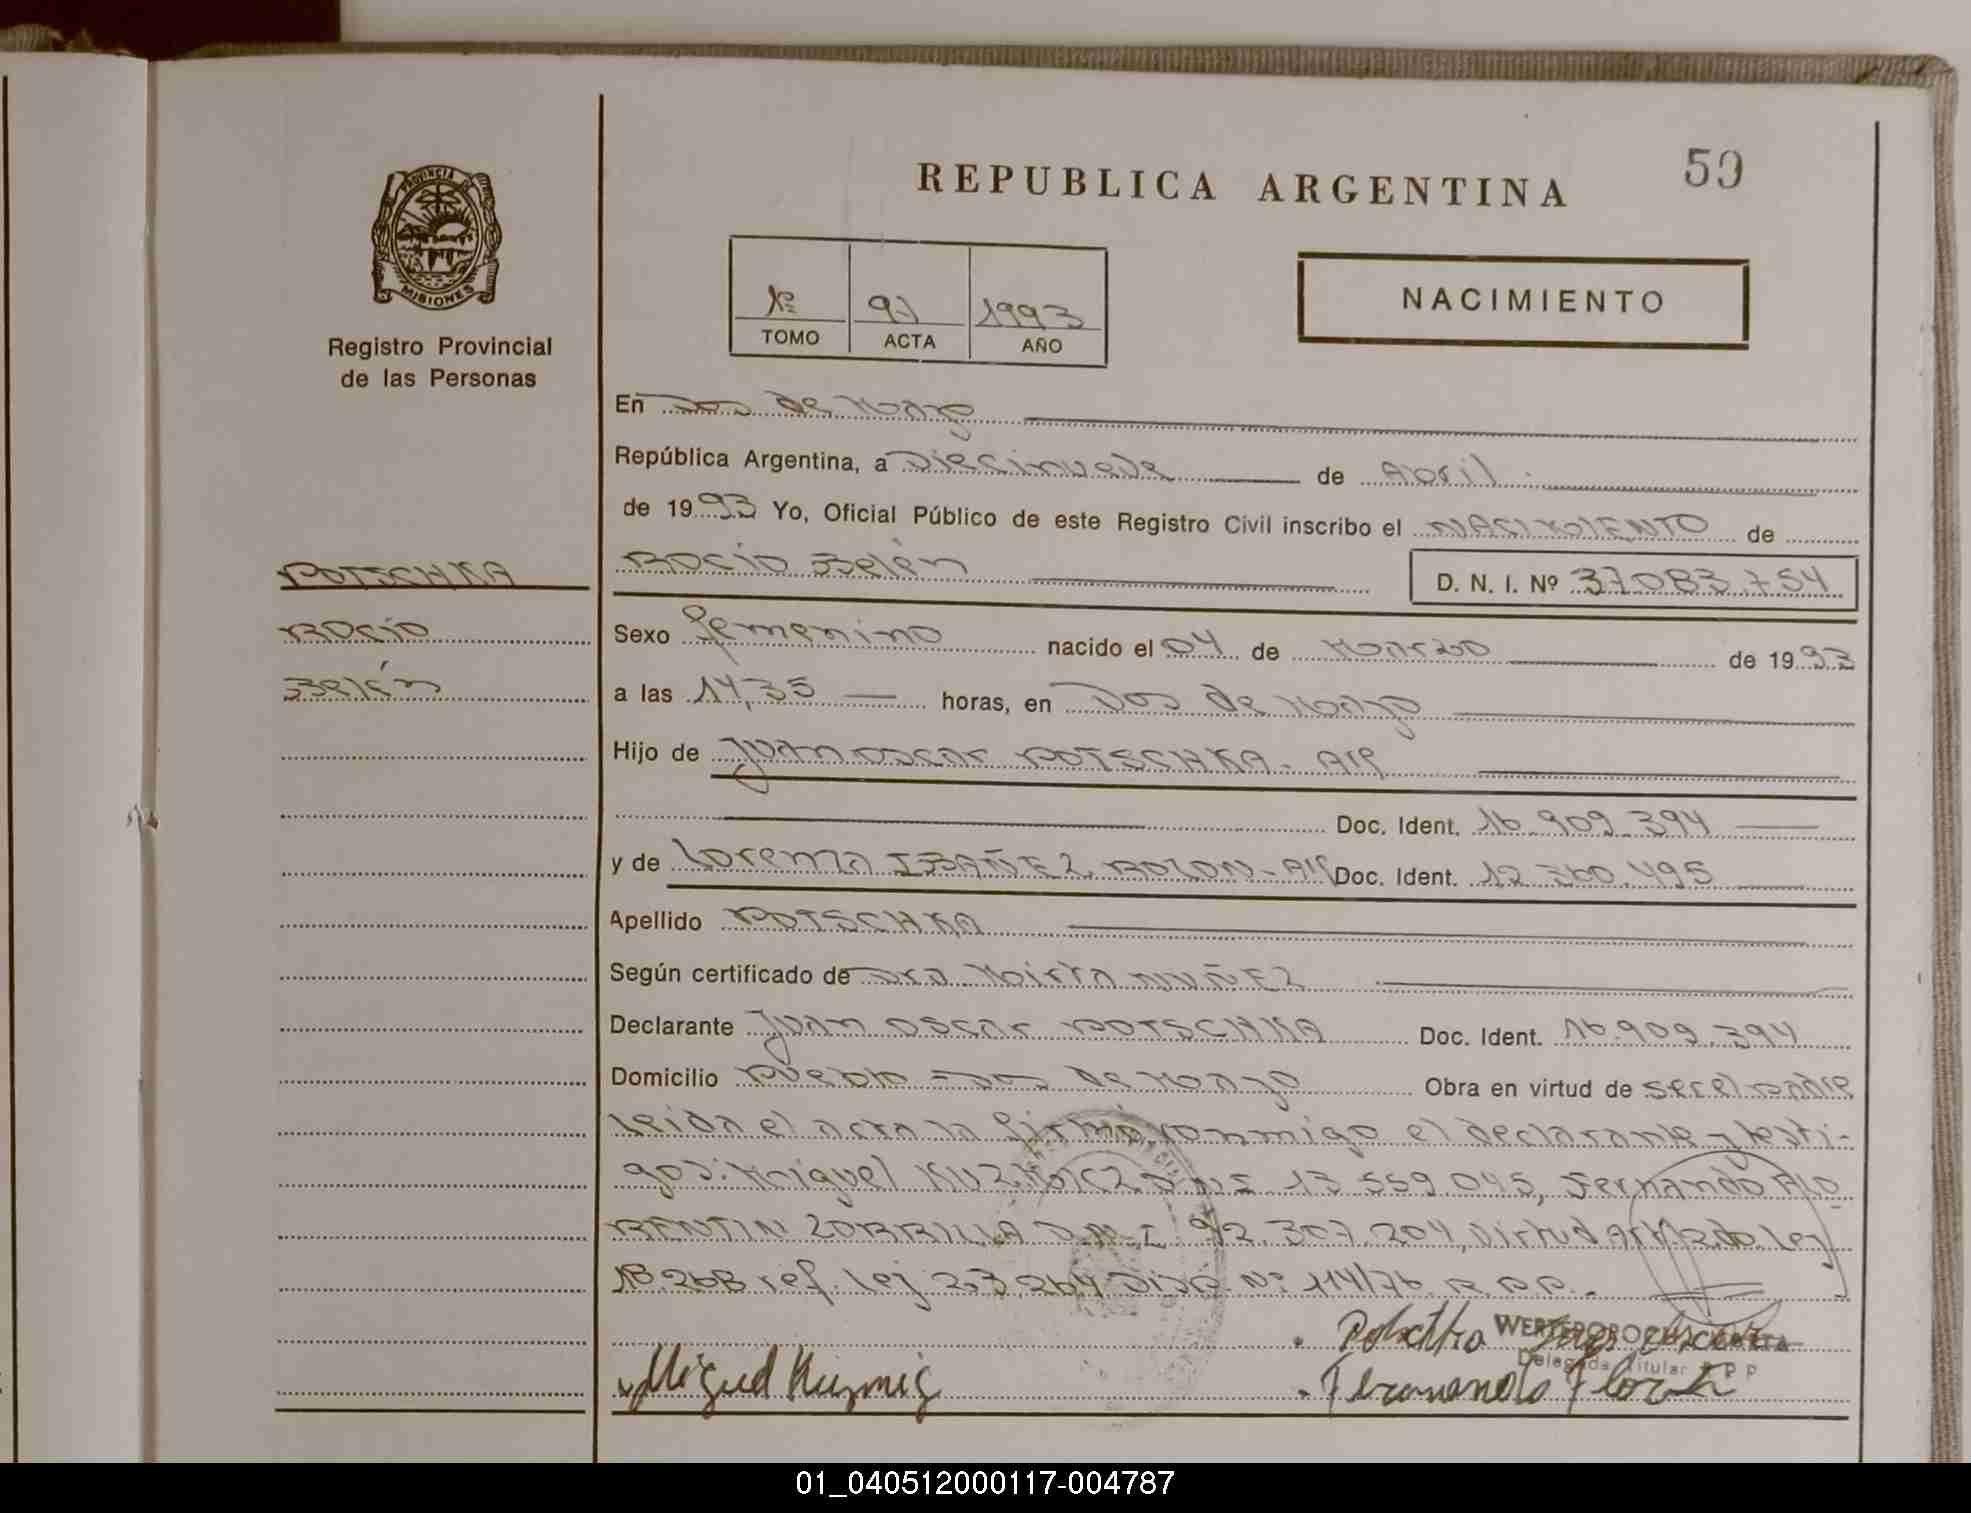 REPUBLICA ARGENTINA
59
PROVINCIA DE
MISIONES
Registro Provincial
de las Personas
Nº
TOMO
91
ACTA
1993
AÑO
NACIMIENTO
En Dos de Mayo
República Argentina, a Diecinueve de Abril
de 1993 Yo, Oficial Público de este Registro Civil inscribo el NACIMIENTO de
POTSCHKA
Rocío Belén
D. N. I. Nº 37.083.754
Rocío
Belén
Sexo femenino nacido el 04 de Marzo de 1993
a las 14,35 horas, en Dos de Mayo
Hijo de Juan Oscar POTSCHKA - Arg
Doc. Ident. 16.909.394
y de Lorenza IBAÑEZ ROLON - Doc. Ident. 12.360.495
Apellido POTSCHKA
Según certificado de Dra Mirta NUÑEZ
Declarante Juan Oscar POTSCHKA Doc. Ident. 16.909.394
Domicilio Pueblo - Dos de Mayo Obra en virtud de ser el padre
Leida el acta la firma conmigo el declarante y testi-
gos: Miguel KUZMICZ DNI 13.559.045, Fernando FLO
RENTIN ZORRILLA D.N.I. 92.307.204, Virtud Art 2do. Ley
18.268 ref. ley 23.264 Disp. Nº 114/76 R.P.P.
Delegada Titular R P P
Miguel Kuzmicz
Fernando
01_040512000117-004787